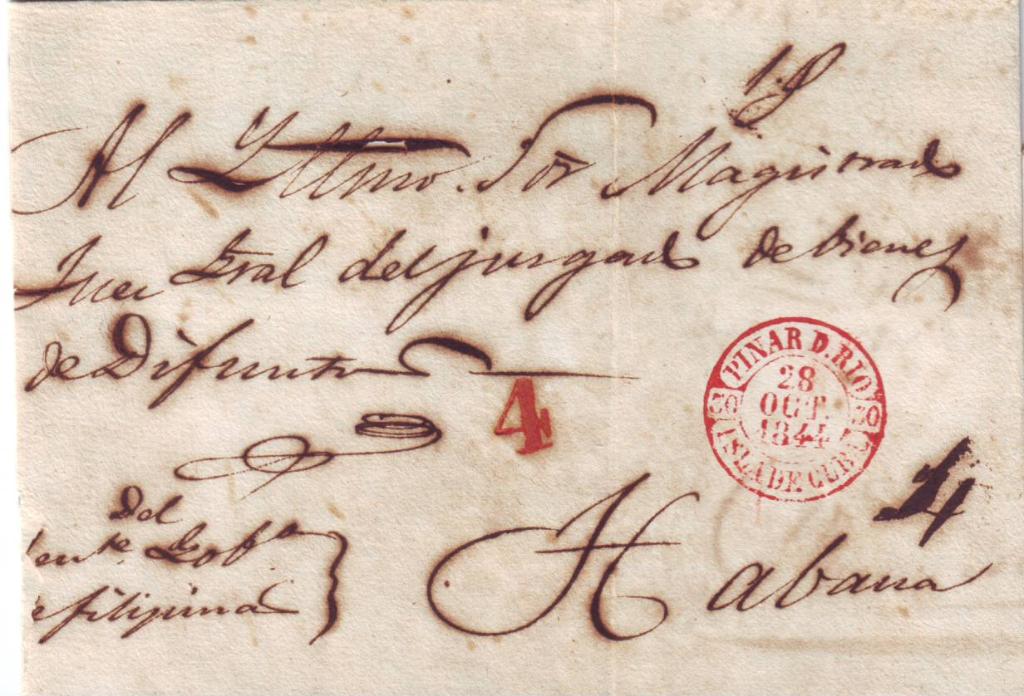 Al Yllmo. Sor Magistrado
Juez Gral del jusgado de bienes
de Difuntos
4
PINAR D. RIO
28
OCT.
1844
ISLA DE CUBA
Del
ente. Gobor.
e filipina
Habana